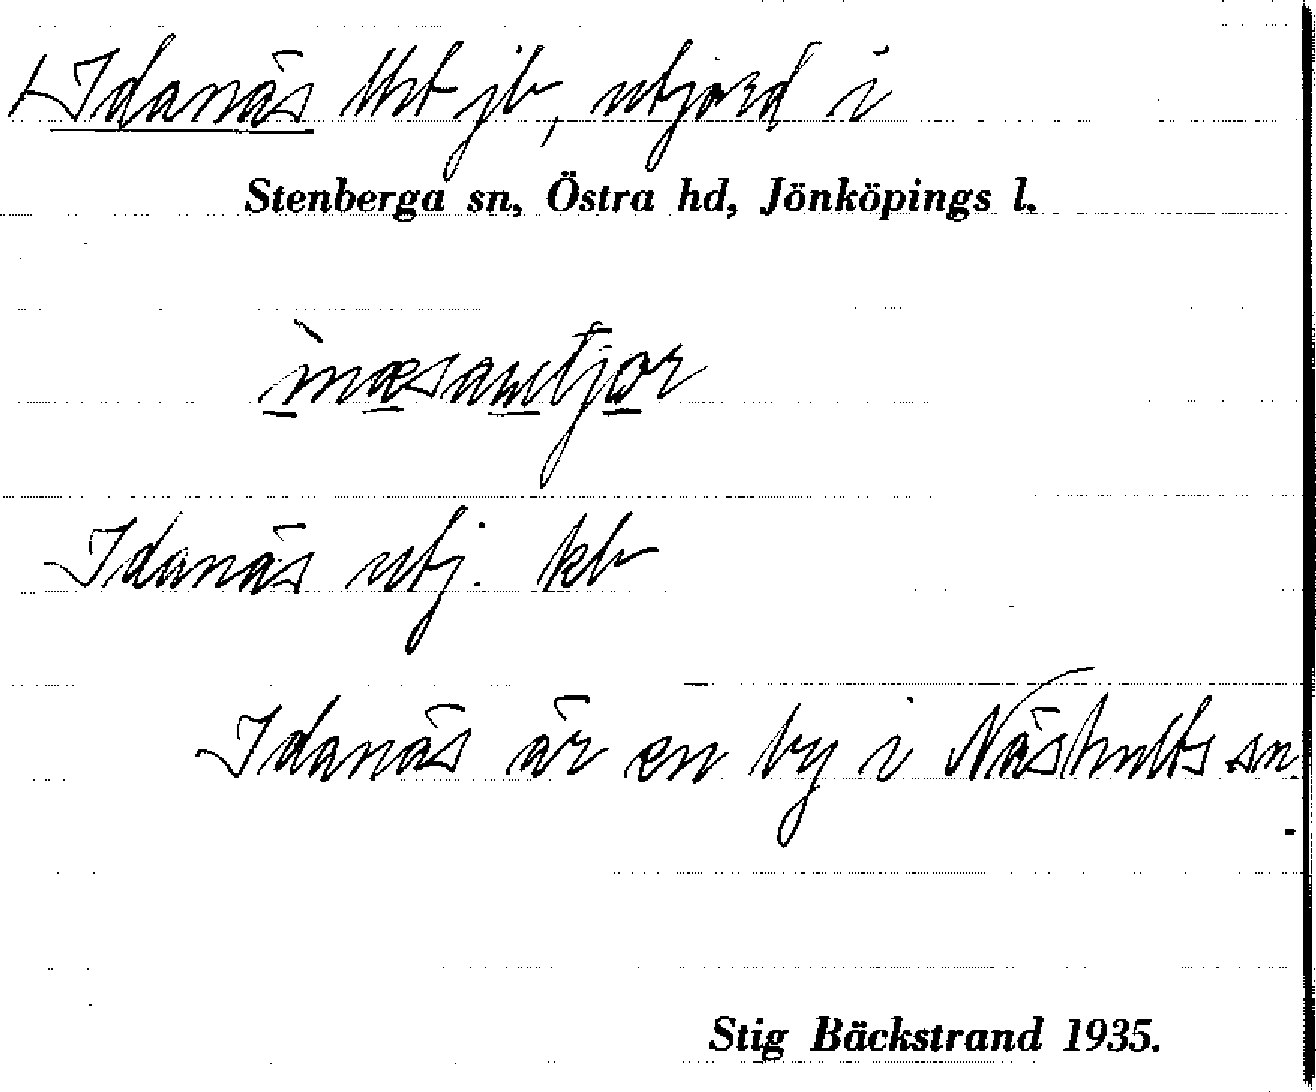 Idanäs Urt jb, utjord i
Stenberga sn, Östra hd, Jönköpings l.
Idanäs utj. kb
Idanäs är en by i Näshults sn.
Stig Bäckstrand 1935.